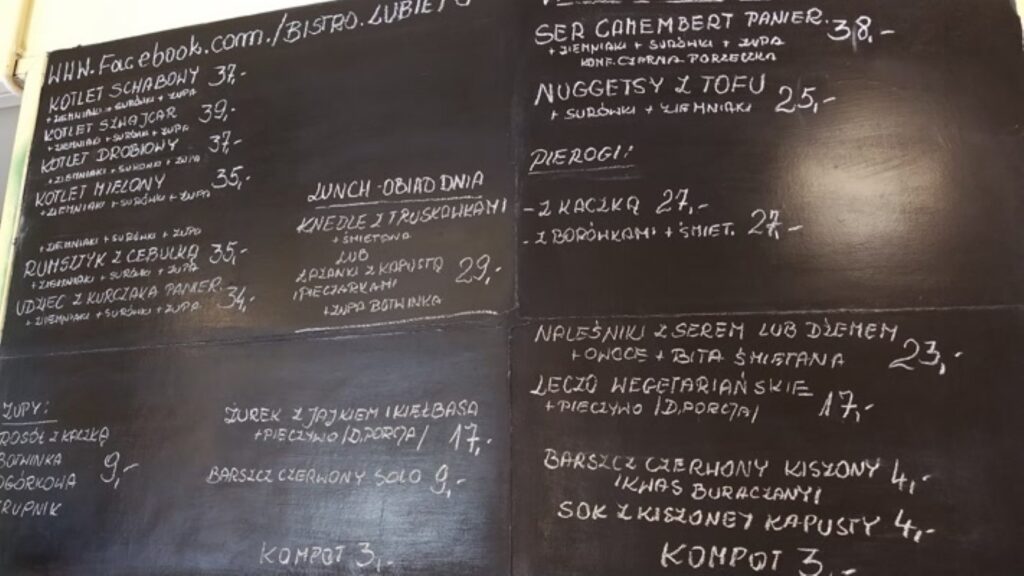 WWW.Facebook.com./BISTRO.LUBIĘTO
KOTLET SCHABOWY 37,-
+ ZIEMNIAKI + SURÓWKI + ZUPA
KOTLET SZWAJCAR 39,-
+ ZIEMNIAKI + SURÓWKI + ZUPA
KOTLET DROBIOWY 37,-
+ ZIEMNIAKI + SURÓWKI + ZUPA
KOTLET MIELONY 35,-
+ ZIEMNIAKI + SURÓWKI + ZUPA
+ ZIEMNIAKI + SURÓWKI + ZUPA
RUMSZTYK Z CEBULKĄ 35,-
+ ZIEMNIAKI + SURÓWKI + ZUPA
UDZIEC Z KURCZAKA PANIER. 34,-
+ ZIEMNIAKI + SURÓWKI + ZUPA
LUNCH-OBIAD DNIA
KNEDLE Z TRUSKAWKAMI
+ ŚMIETANA
LUB
ŁAZANKI Z KAPUSTĄ 29,-
I PIECZARKAMI
+ ZUPA BOTWINKA
SER CAMEMBERT PANIER. 38,-
+ ZIEMNIAKI + SURÓWKI + ZUPA
KONF. CZARNA PORZECZKA
NUGGETSY Z TOFU 25,-
+ SURÓWKI + ZIEMNIAKI
PIEROGI:
- Z KACZKĄ 27,-
- Z BORÓWKAMI + ŚMIET. 27,-
ZUPY:
ROSÓŁ Z KACZKĄ
BOTWINKA 9,-
OGÓRKOWA
KRUPNIK
ŻUREK Z JAJKIEM I KIEŁBASĄ
+ PIECZYWO /D.PORCJA/ 17,-
BARSZCZ CZERWONY SOLO 9,-
KOMPOT 3,-
NALEŚNIKI Z SEREM LUB DŻEMEM 23,-
+ OWOCE + BITA ŚMIETANA
LECZO WEGETARIAŃSKIE 17,-
+ PIECZYWO /D.PORCJA/
BARSZCZ CZERWONY KISZONY 4,-
/KWAS BURACZANY/
SOK Z KISZONEJ KAPUSTY 4,-
KOMPOT 3,-